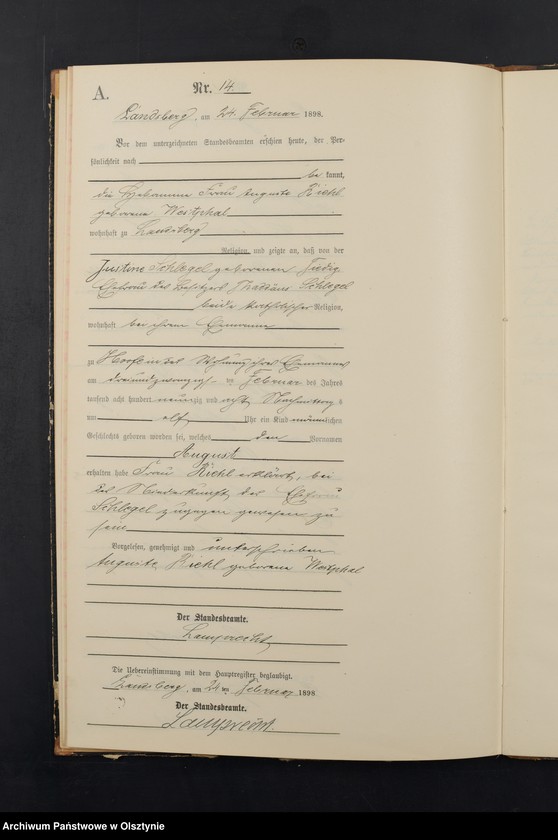 A.
Nr. 14.
Landsberg, am 24. Februar 1898.
Vor dem unterzeichneten Standesbeamten erschien heute, der Per-
sönlichkeit nach
be kannt,
die Hebamme Frau Auguste Kiehl
geborene Westphal
wohnhaft zu Landsberg
Religion, und zeigte an, daß von der
Justine Schlegel geborenen
Ehefrau des Besitzers Thadäus Schlegel
beide katholischer Religion,
wohnhaft bei ihrem Ehemanne
zu Hoofe in der Wohnung ihres Ehemannes
am dreiundzwanzigsten Februar des Jahres
tausend acht hundert neunzig und acht Nachmittags
um elf Uhr ein Kind männlichen
Geschlechts geboren worden sei, welches den Vornamen
August
erhalten habe Frau Kiehl erklärt, bei
der Niederkunft der Ehefrau
Schlegel zugegen gewesen zu
sein
Vorgelesen, genehmigt und unterschrieben
Auguste Kiehl geborene Westphal
Der Standesbeamte.
Lamprecht
Die Uebereinstimmung mit dem Hauptregister beglaubigt.
Landsberg, am 24 ten Februar 1898
Der Standesbeamte.
Lamprecht.
Archiwum Państwowe w Olsztynie